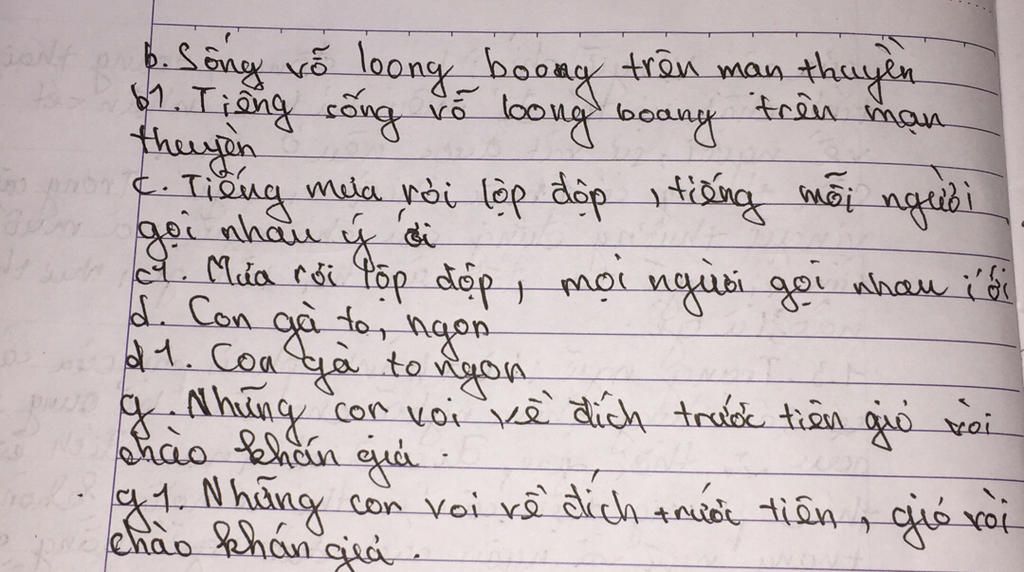 b. Sống vỗ loong boong trên man thuyền
b1. Tiếng sống vỗ loong boang trên mạn
thuyền
c. Tiếng mưa rời lộp độp, tiếng mỗi người
gọi nhau ý ới
c1. Mưa rơi lộp độp, mọi người gọi nhau í ới
d. Con gà to, ngon
d1. Con gà to ngon
g. Những con voi về đích trước tiên gió vòi
chào khán giả.
g1. Những con voi về đích trước tiên, gió vòi
chào khán giả.